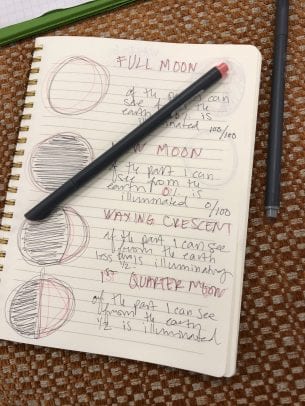 FULL MOON
of the part I can
see from the
earth is
illuminated 100/100
MOON
of the part I can
see from the
earth 0% is
illuminated 0/100
WAXING CRESCENT
of the part I can see
from the earth
less than
1/2 is illuminating
1ST QUARTER MOON
of the part I can see
from the earth
1/2 is illuminated